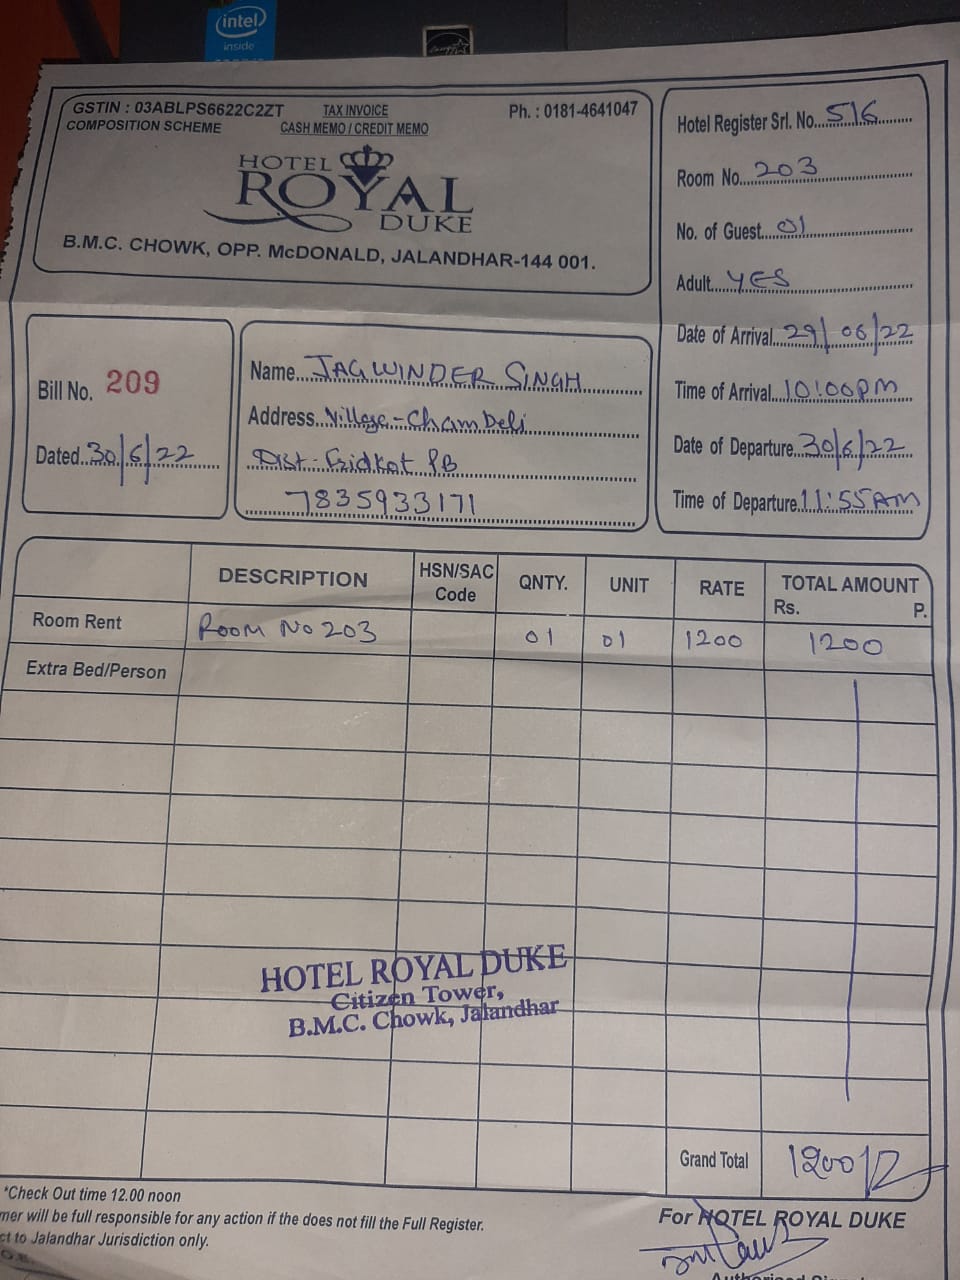 intel
inside
GSTIN : 03ABLPS6622C2ZT
TAX INVOICE
Ph. : 0181-4641047
COMPOSITION SCHEME
CASH MEMO / CREDIT MEMO
HOTEL
ROYAL
DUKE
B.M.C. CHOWK, OPP. McDONALD, JALANDHAR-144 001.
Hotel Register Srl. No. 516
Room No. 203
No. of Guest 01
Adult YES
Date of Arrival 29/06/22
Time of Arrival 10:00PM
Date of Departure 30/6/22
Time of Departure 11:55AM
Bill No. 209
Dated 30/6/22
Name JAGWINDER SINGH
Address Village-Chambeli
Dist- Fridkot PB
7835933171
DESCRIPTION HSN/SAC Code QNTY. UNIT RATE TOTAL AMOUNT
Rs. P.
Room Rent ROOM NO 203 01 01 1200 1200
Extra Bed/Person
HOTEL ROYAL DUKE
Citizen Tower,
B.M.C. Chowk, Jalandhar
Grand Total 1200/
*Check Out time 12.00 noon
mer will be full responsible for any action if the does not fill the Full Register.
ct to Jalandhar Jurisdiction only.
For HOTEL ROYAL DUKE